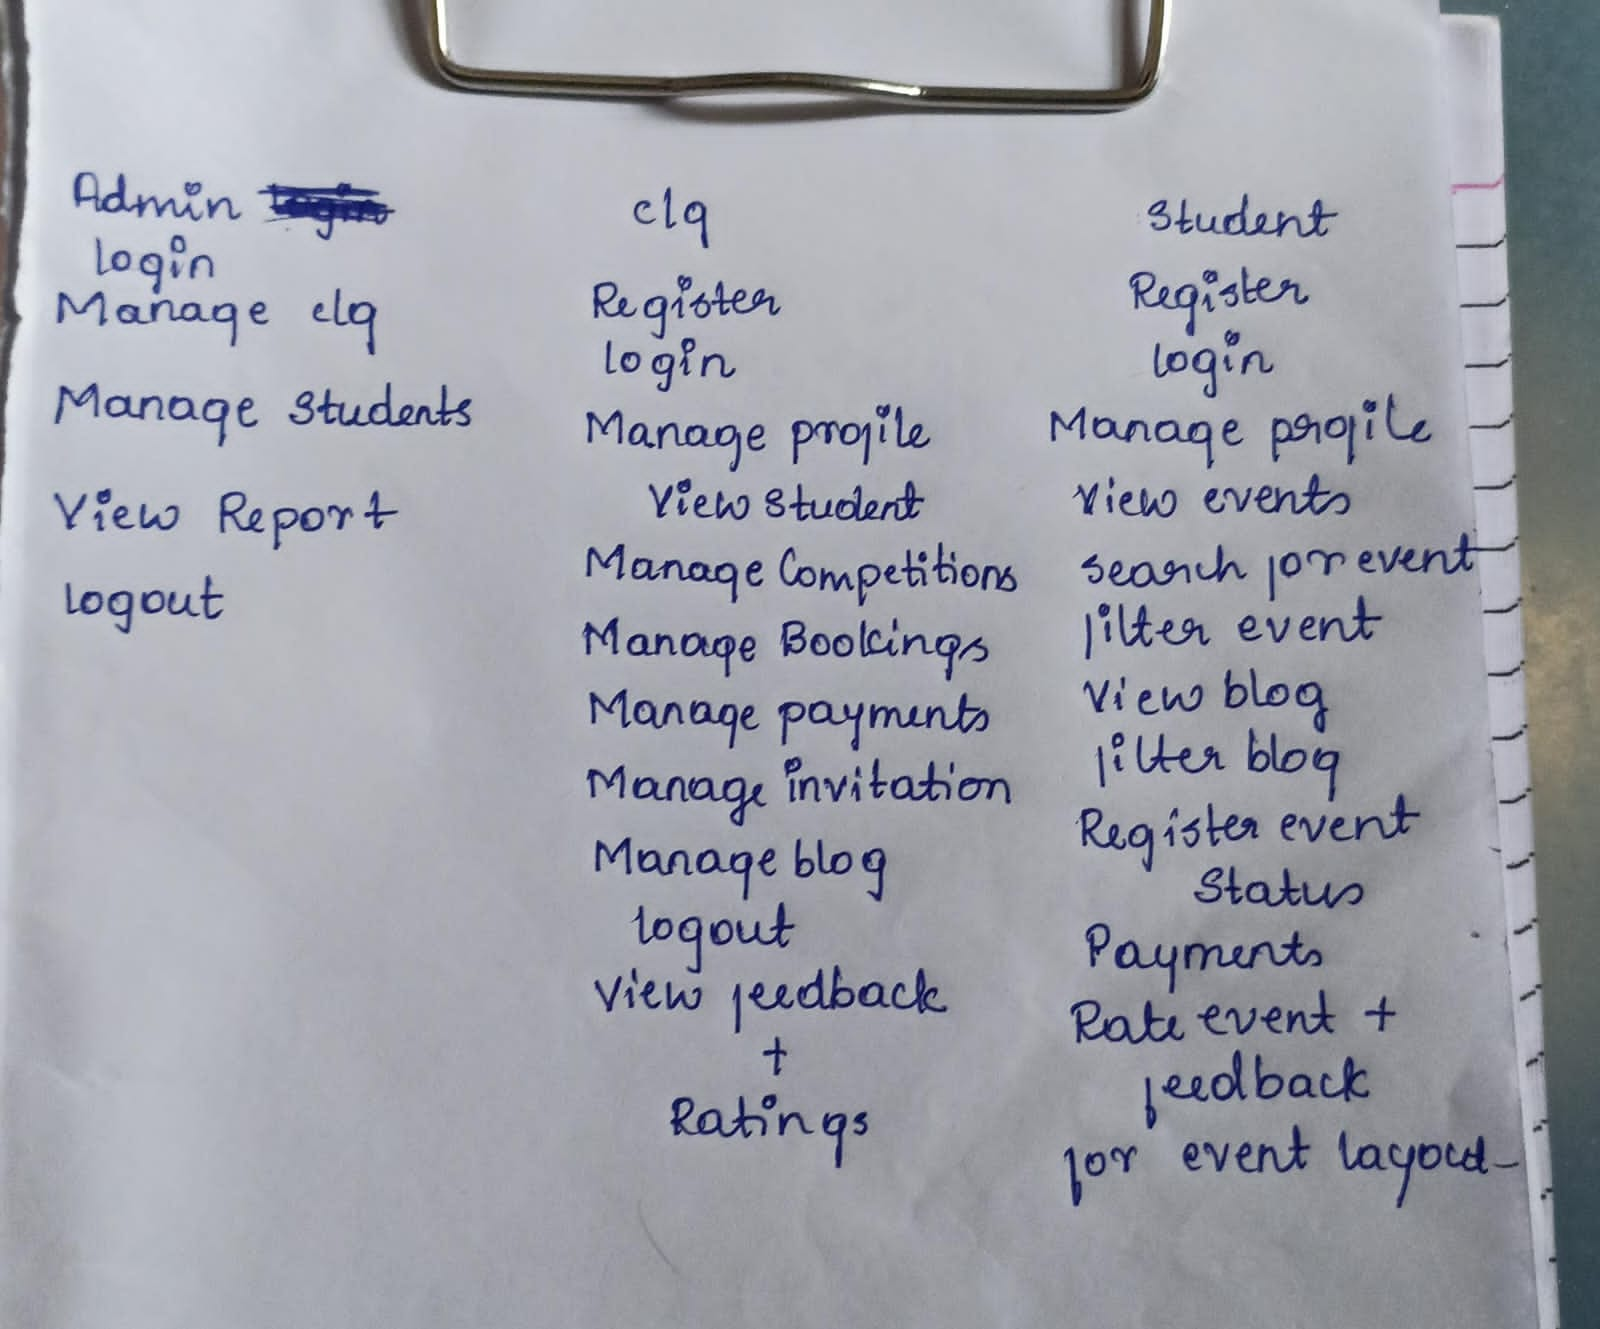 Admin
login
Manage clg
Manage Students
View Report
logout
clg
Register
login
Manage profile
View Student
Manage Competitions
Manage Bookings
Manage payments
Manage invitation
Manage blog
logout
View feedback
+
Ratings
Student
Register
login
Manage profile
View events
search for event
filter event
View blog
filter blog
Register event
Status
Payments
Rate event +
feedback
for event layout